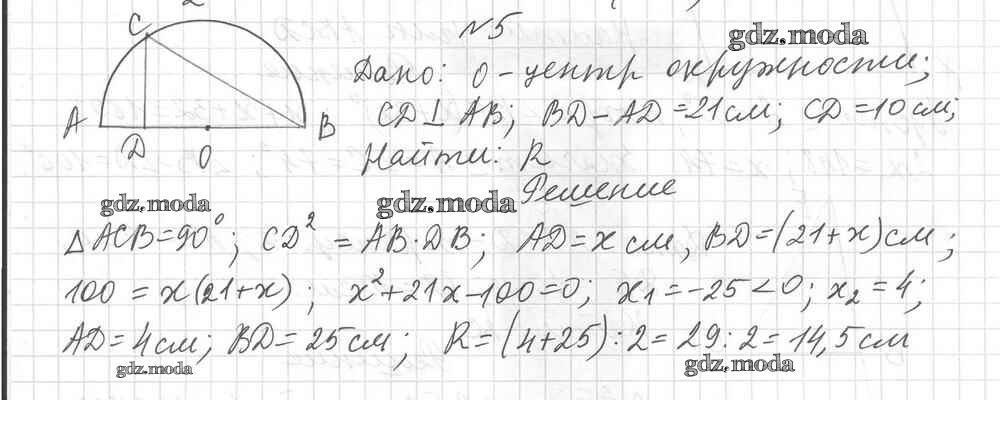 №5
gdz.moda
Дано: O - центр окружности;
CD ⊥ AB; BD - AD = 21 см; CD = 10 см;
Найти: R
Решение
C
A
D
O
B
gdz.moda
gdz.moda
△ ACB = 90°; CD² = AB · DB; AD = x см, BD = (21 + x) см;
100 = x (21 + x); x² + 21x - 100 = 0; x₁ = -25 < 0; x₂ = 4;
AD = 4 см; BD = 25 см; R = (4 + 25) : 2 = 29 : 2 = 14,5 см
gdz.moda
gdz.moda